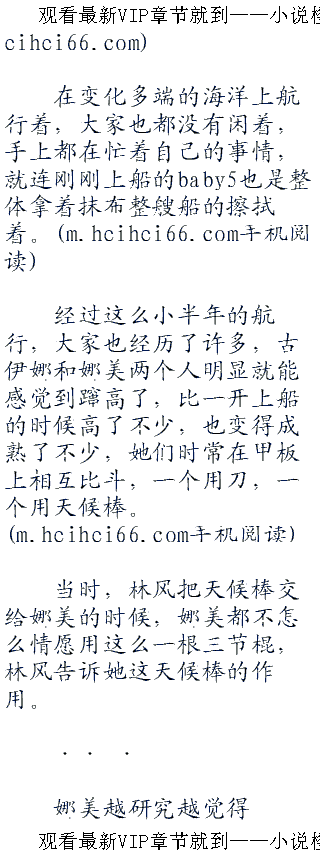 观看最新VIP章节就到——小说楼
cihci66.com)
在变化多端的海洋上航
行着，大家也都没有闲着，
手上都在忙着自己的事情，
就连刚刚上船的baby5也是整
体拿着抹布整艘船的擦拭
着。(m.hcihci66.com手机阅
读)
经过这么小半年的航
行，大家也经历了许多，古
伊娜和娜美两个人明显就能
感觉到蹿高了，比一开上船
的时候高了不少，也变得成
熟了不少，她们时常在甲板
上相互比斗，一个用刀，一
个用天候棒。
(m.hcihci66.com手机阅读)
当时，林风把天候棒交
给娜美的时候，娜美都不怎
么情愿用这么一根三节棍，
林风告诉她这天候棒的作
用。
...
娜美越研究越觉得
观看最新VIP章节就到——小说楼